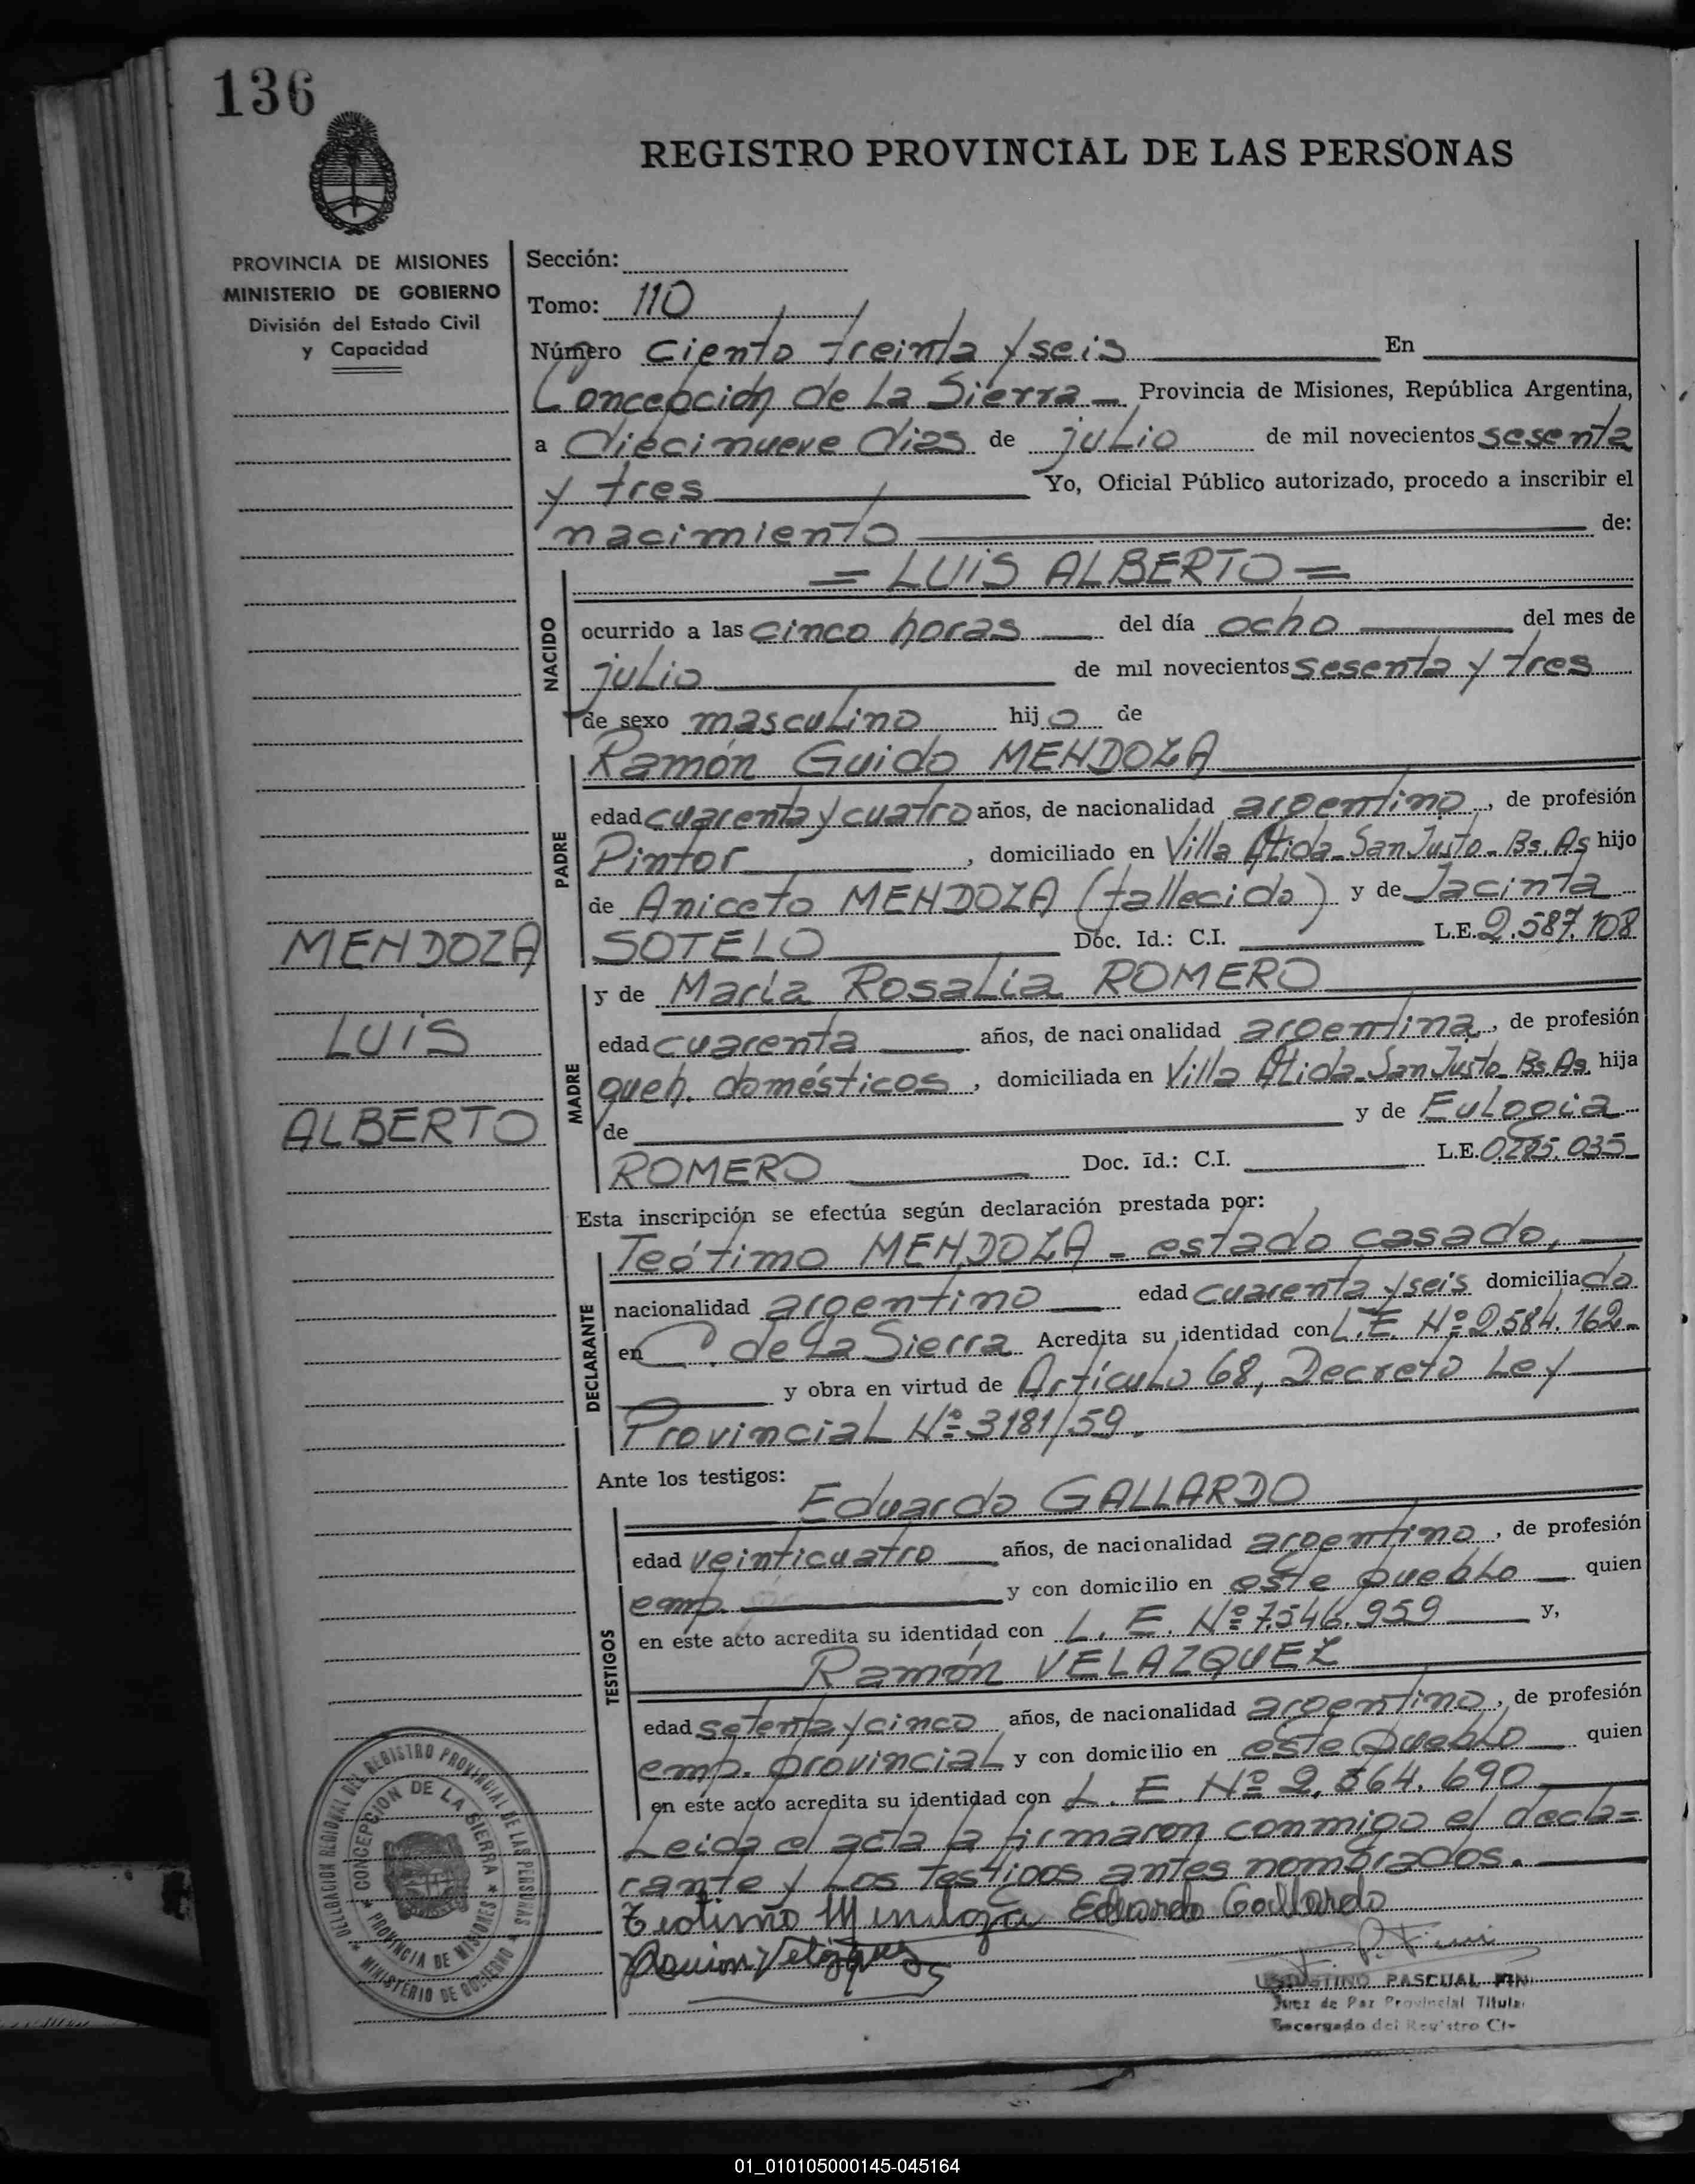 136
REGISTRO PROVINCIAL DE LAS PERSONAS
PROVINCIA DE MISIONES
MINISTERIO DE GOBIERNO
División del Estado Civil
y Capacidad
Sección:
Tomo: 110
Número Ciento treinta y seis En
Concepción de La Sierra Provincia de Misiones, República Argentina,
a diecinueve dias de julio de mil novecientos sesenta
y tres Yo, Oficial Público autorizado, procedo a inscribir el
nacimiento de:
= LUIS ALBERTO =
NACIDO
ocurrido a las cinco horas del día ocho del mes de
julio de mil novecientos sesenta y tres
de sexo masculino hijo de
PADRE
Ramón Guido MENDOZA
edad cuarenta y cuatro años, de nacionalidad argentino, de profesión
Pintor, domiciliado en Villa San Justo - Bs. As hijo
de Aniceto MENDOZA (fallecido) y de Jacinta
SOTELO Doc. Id.: C.I. L.E. 2.587.108
MENDOZA
LUIS
ALBERTO
MADRE
y de María Rosalia ROMERO
edad cuarenta años, de nacionalidad argentina, de profesión
queh. domésticos, domiciliada en Villa San Justo - Bs. As. hija
de y de Eulogia
ROMERO Doc. Id.: C.I. L.E.
Esta inscripción se efectúa según declaración prestada por:
DECLARANTE
Teótimo MENDOZA - estado casado,
nacionalidad argentino edad cuarenta y seis domiciliado
en C. de La Sierra Acredita su identidad con L.E. Nº 2.584.162-
y obra en virtud de Artículo 68, Decreto Ley
Provincial Nº 3181/59.
Ante los testigos:
TESTIGOS
Eduardo GALLARDO
edad veinticuatro años, de nacionalidad argentino, de profesión
emp. y con domicilio en este pueblo quien
en este acto acredita su identidad con L. E. Nº 7.546.959 y,
Ramón VELAZQUEZ
edad setenta y cinco años, de nacionalidad argentino, de profesión
emp. provincial y con domicilio en este pueblo quien
en este acto acredita su identidad con L. E. Nº 2.564.690
Leida el acta la firmaron conmigo el decla=
rante y Los testigos antes nombrados.
Teotimo Mendoza Eduardo Gallardo
Ramon Velázquez
PASCUAL
Juez de Paz Provincial Titular
Encargado del Registro Ci-
DELEGACION REGIONAL DEL REGISTRO PROVINCIAL DE LAS PERSONAS
MINISTERIO DE GOBIERNO
CONCEPCION DE LA SIERRA
PROVINCIA DE MISIONES
01_010105000145-045164